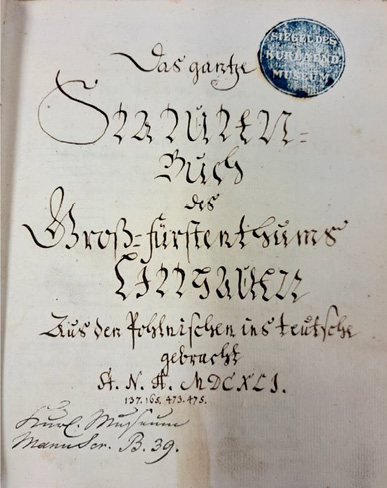 Das gantze
SIEGEL DES
KURLAEND
MUSEUM
STATUTEN=
Buch
des
Groß=fürstenthums
LITTHAUEN
Aus den Pohlnischen ins teutsche
gebracht
A. N. A. MDCXLI.
137. 165. 473. 475.
Kurl. Museum
Manuscr. B. 39.